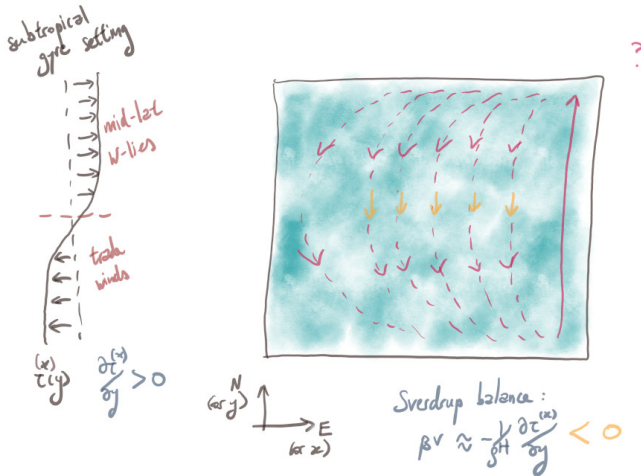 subtropical
gyre setting
mid-lat
W-lies
trade
winds
τ^(x)(y)
∂τ^(x)/∂y > 0
?
N
(or y)
E
(or x)
Sverdrup balance :
βv ≈ - 1/ρH ∂τ^(x)/∂y < 0